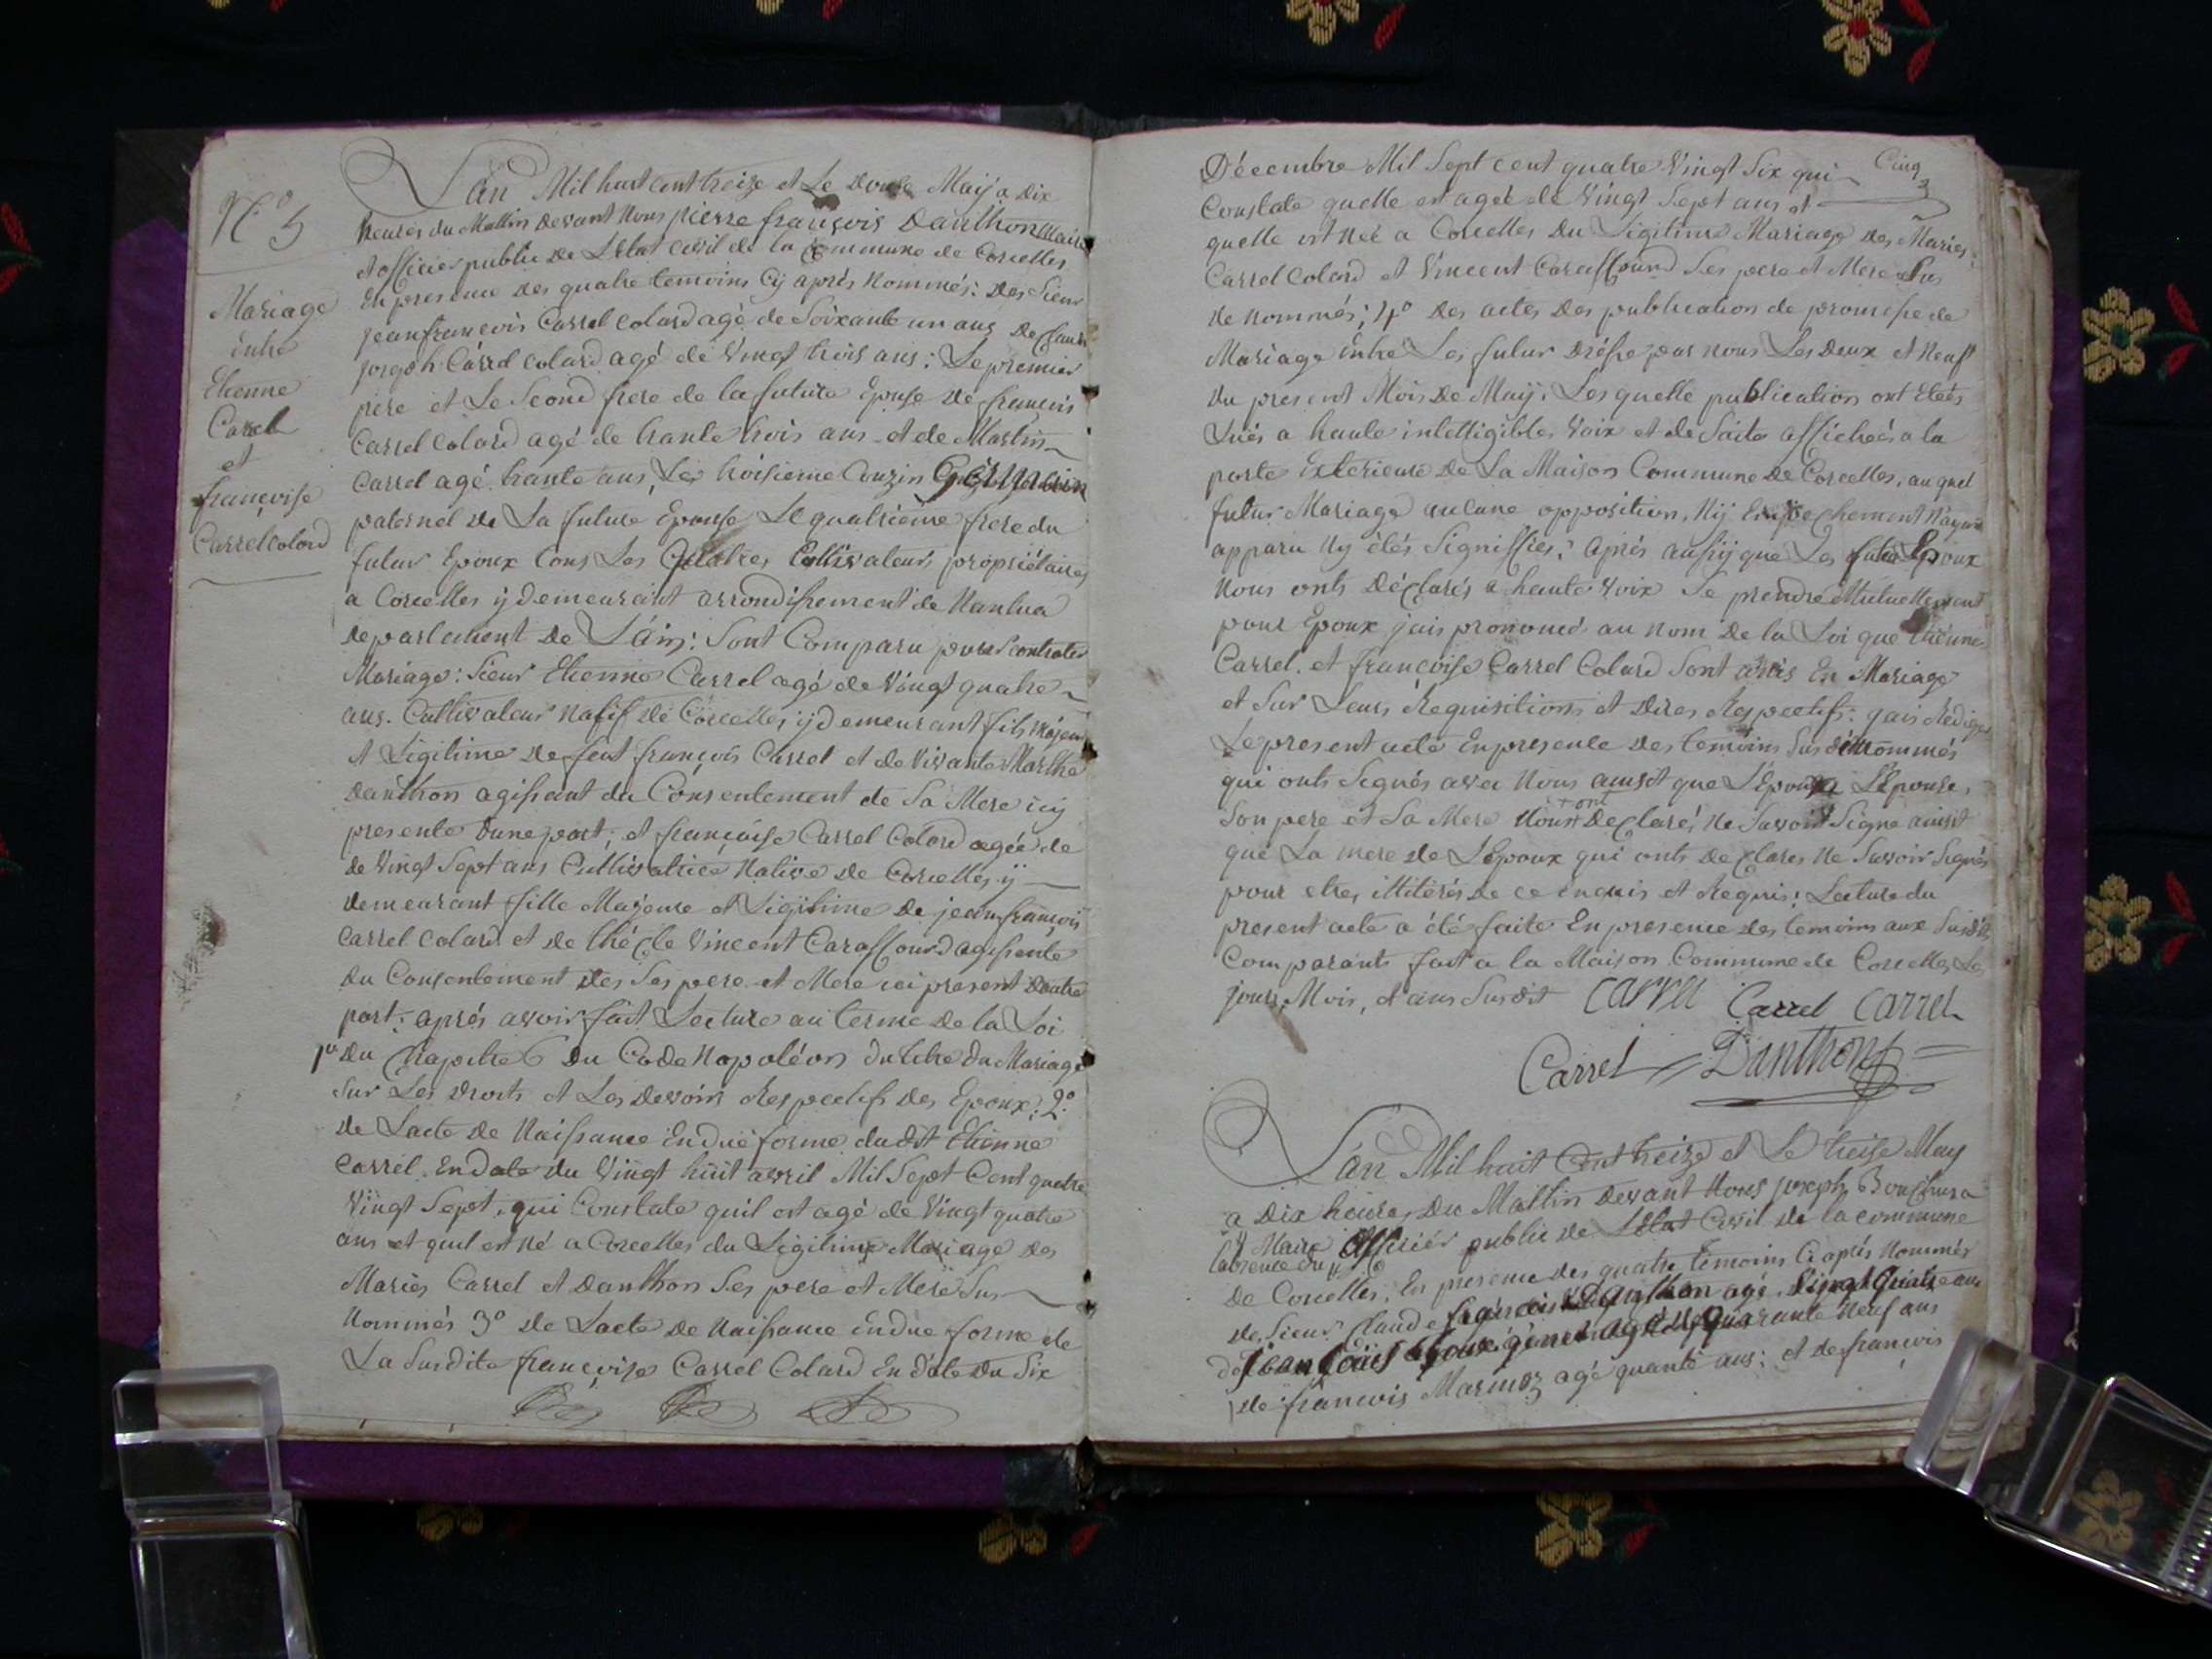 N.º 5
Mariage
entre
Etienne
Carrel
et
françoise
Carrel Colard
L'an Mil huit cent treize et Le douze Maÿ a Dix
heures du Mattin devant Nous pierre françois Danthon Maire
et officier public de L'Etat civil de la Commune de Corcelles
En presence des quatre temoins Cy aprés Nommés: des Sieur
jean francois Carrel Colard agé de Soixante un ans de Claude
joseph Carrel Colard agé de Vingt trois ans: Le premier
pere et Le Second frere de la future Epouse de francois
Carrel Colard agé de trante trois ans et de Martin
Carrel agé trante ans, Le troisieme Couzin Germain
paternel de La future Epouse Le quatrieme frere du
futur Epoux tous Les Quatres Cultivateurs propriétaires
a Corcelles ÿ demeurant arrondissement de Nantua
departement de L'ain: Sont Comparu pour contracter
Mariage: Sieur Etienne Carrel agé de Vingt quatre
ans. Cultivateur Natif de Corcelles ÿ demeurant fils Majeur
et Ligitime de feut françois Carrel et de Vivante Marthe
Danthon agissant du Consentement de Sa Mere icy
presente dune part; et françoise Carrel Colard agée de
de Vingt Sept ans Cultivatrice Native de Corcelles ÿ
demeurant fille Majeure et Ligitime de jean françois
Carrel Colard et de thécle Vincent Caraffourd agissente
du Consentement des Ses pere et Mere ici present Dautre
part: aprés avoir fait Lecture au terme de la Loi
1er du Chapitre 6 du Code Napoléon du titre du Mariage
Sur Les droits et Les devoirs Respectifs des Epoux: 2º
de Lacte de Naissance En due forme dudit Etienne
Carrel. En date du Vingt huit avril Mil Sept Cent quatre
Vingt Sept, qui Constate quil est agé de Vingt quatre
ans et quil est Né a Corcelles du Ligitime Mariage des
Mariés Carrel et Danthon Ses pere et Mere Sus
Nommés 3º de Lacte de Naissance En due forme de
La Susdite françoise Carrel Colard En date du Six
Décembre Mil Sept cent quatre Vingt Six qui
Cinq
Constate quelle est agée de Vingt Sept ans et
quelle est Née a Corcelles du Ligitime Mariage des Mariés
Carrel Colard et Vincent Caraffourd Ses pere et Mere Sus
de nommés; 4º des actes des publication de promesse de
Mariage Entre Les futur par nous Les deux et Neuf
du present Mois de Maÿ; Les quelle publication ont Etées
Luës a haute intelligible Voix et de Suite affichées a la
porte Exterieure de La Maison Commune de Corcelles, auquel
futur Mariage aucune opposition, Nÿ Empechement Nayant
apparu Nÿ étés Signiffies: aprés aussÿ que Les futur Epoux
Nous onts Déclarés a haute Voix Se prendre Mutuellement
pour Epoux jais prononcé au Nom de la Loi que Etienne
Carrel. et françoise Carrel Colard Sont unis En Mariage
et Sur Leurs Requisitions et dires Respectifs: jais Rédigé
Le present acte En presence des temoins Susdénommés
qui onts Segnés avec Nous ainsit que L'Epoux L'Epouse,
ont
Son pere et Sa Mere Nous Declaré, Ne Savoir Signe ainsit
que La mere de L'Epoux qui onts declares Ne Savoir Segnés
pour etres illitérés de ce Enquis et Requis: Lecture du
present acte a été faite En presence des temoins aux Susdits
Comparants fait a la Maison Commune de Corcelles Les
jours, Mois, et ans Susdit Carrel Carrel Carrel
Carrel Danthon
L'an Mil huit Cent treize et Le treise May
a Dix heures Du Mattin devant Nous joseph
Maire Officier public de L'Etat Civil de la commune
labsence du
de Corcelles, En presence des quatre temoins Ci aprés Nommés
de Sieur Claude françois Danthon agé Vingt Quatre ans
de Jean Louis agé de Quarante Neuf ans
de francois Marmoz agé quante ans: et de francois